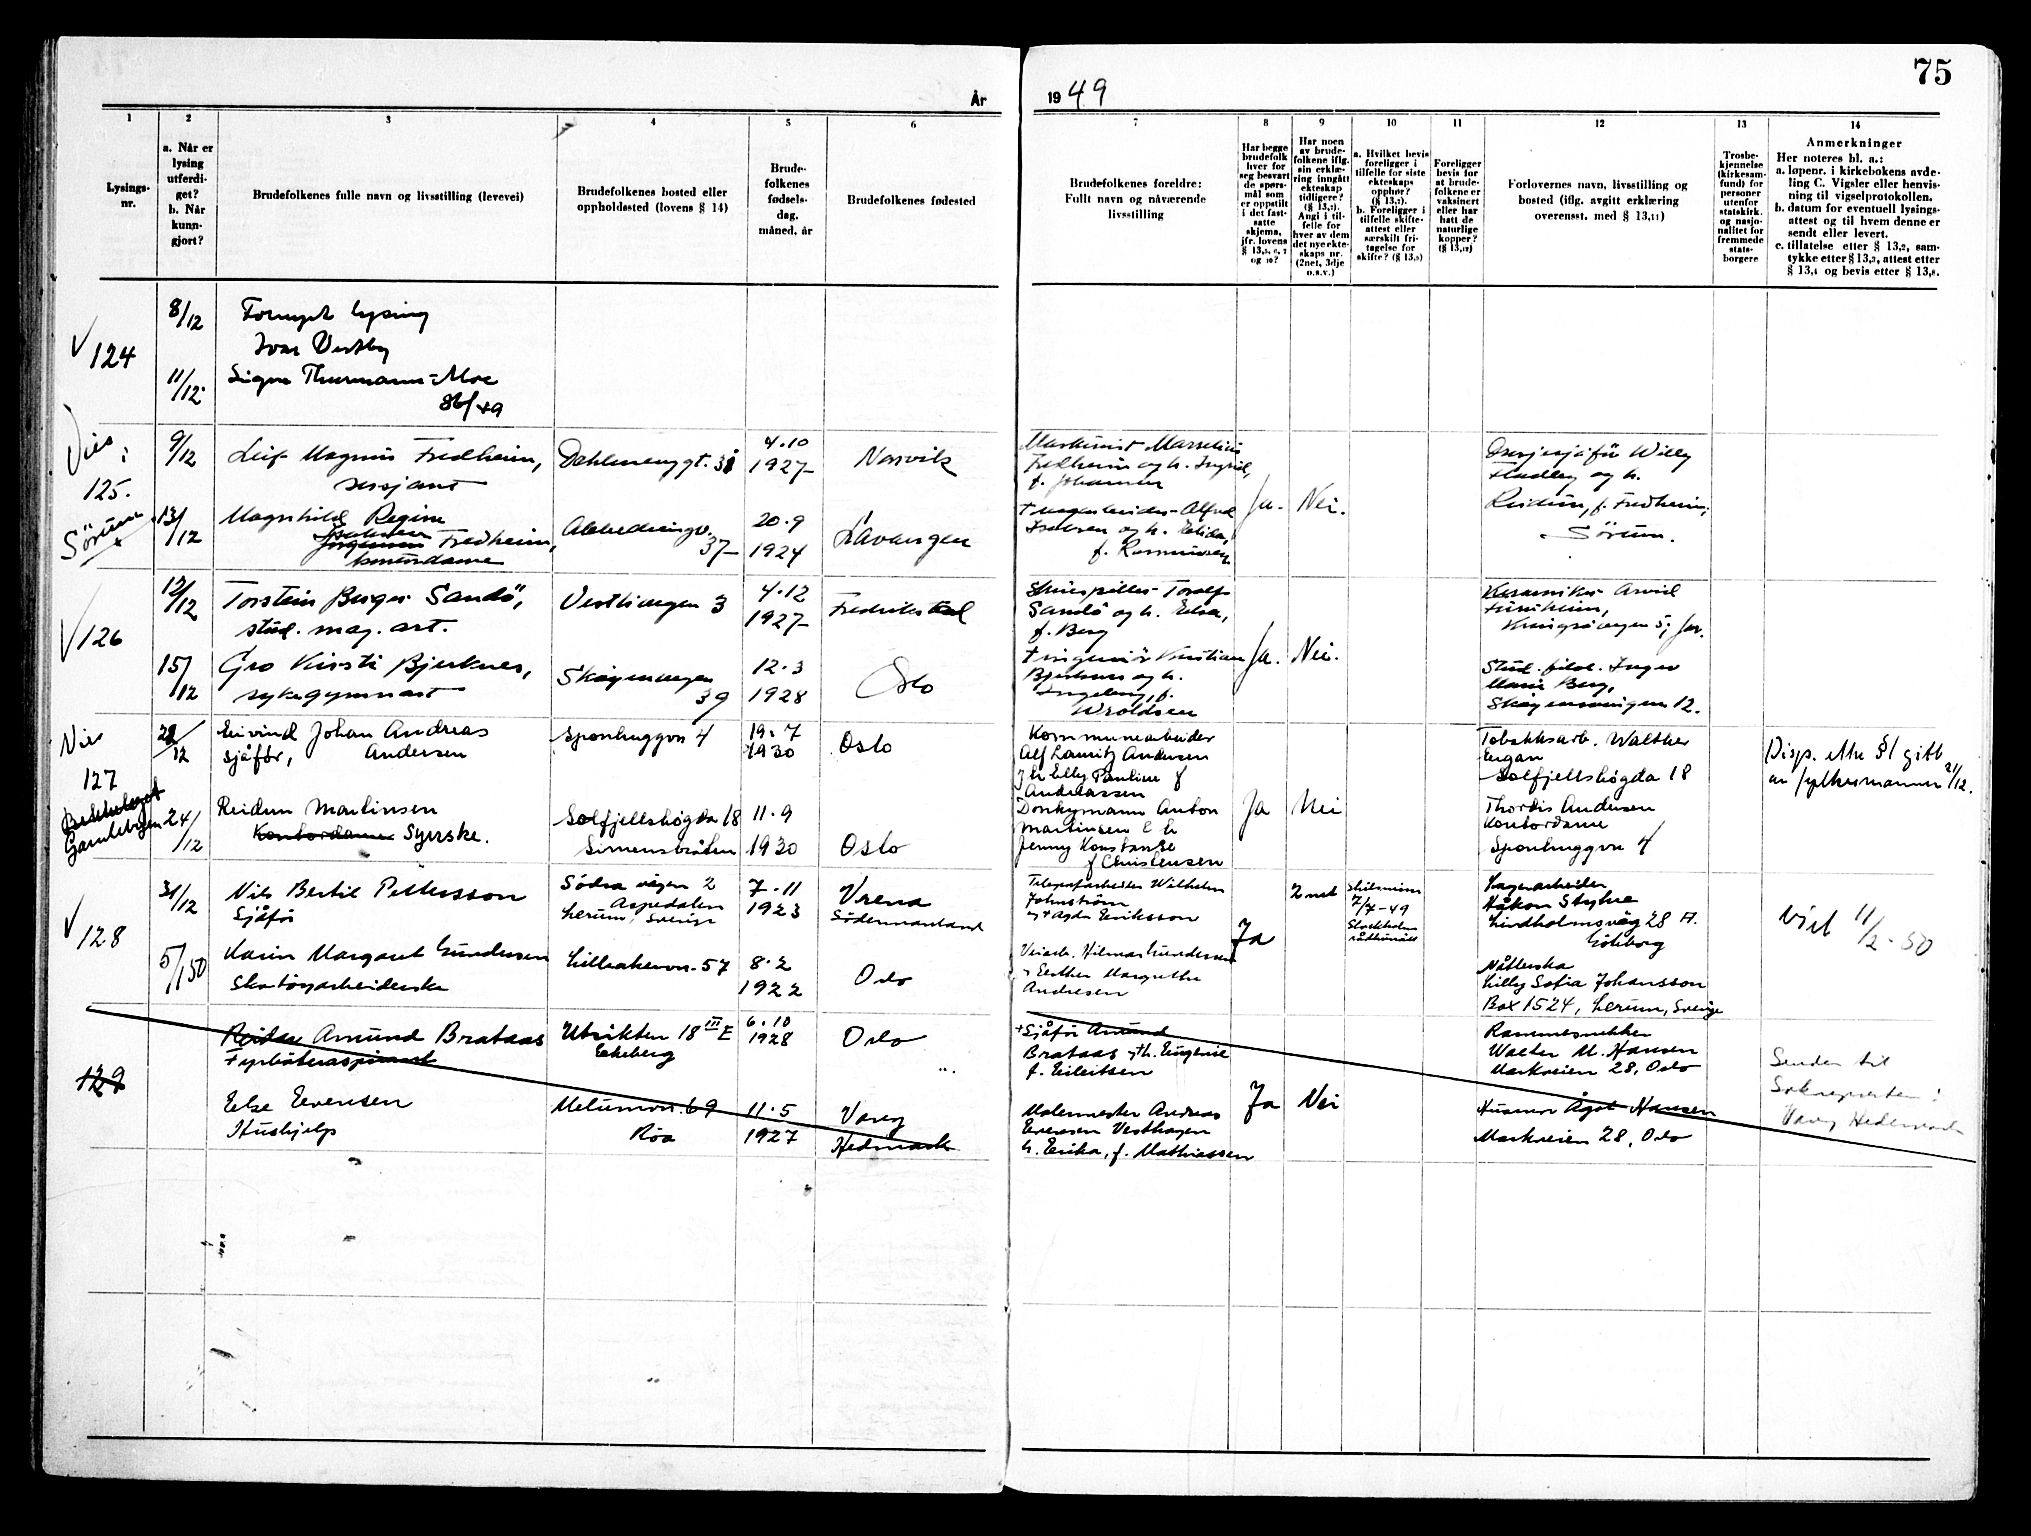 75
År 1949
1
2
3
4
5
6
7
8
9
10
11
12
13
14
Lysings-
nr.
a. Når er
lysing
utferdi-
get?
b. Når
kunn-
gjort?
Brudefolkenes fulle navn og livsstilling (levevei)
Brudefolkenes bosted eller
oppholdssted (lovens § 14)
Brude-
folkenes
fødsels-
dag,
måned, år
Brudefolkenes fødested
Brudefolkenes foreldre:
Fullt navn og nåværende
livsstilling
Har begge
brudefolk
hver for
seg besvart
de spørs-
mål som
er oppstilt
i det fast-
satte
skjema,
jfr. lovens
Har noen
av brude-
folkene iflg.
sin erklæ-
ring inngått
ekteskap
tidligere?
Angi i til-
felle for
hver av dem
det nye ekte-
skaps nr.
(2net, 3dje
o.s.v.)
a. Hvilket bevis
foreligger i
tilfelle for siste
ekteskaps
opphør?
b. Foreligger i
tilfelle skifte-
attest eller
særskilt fri-
tagelse for
skifte?
Foreligger
bevis for
at brude-
folkene er
vaksinert
eller har
hatt de
naturlige
kopper?
Forlovernes navn, livsstilling og
bosted (iflg. avgitt erklæring
overensst. med § 13,11)
Trosbe-
kjennelse
(kirkesam-
fund) for
personer
utenfor
statskirk.
og nasjo-
nalitet for
fremmede
stats-
borgere
Anmerkninger
Her noteres bl. a.:
a. løpenr. i kirkebokens avde-
ling C. Vigsler eller henvis-
ning til vigselprotokollen.
b. datum for eventuell lysings-
attest og til hvem denne er
sendt eller levert.
c. tillatelse etter § 13,2, sam-
tykke etter § 13,3, attest etter
§ 13,4 og bevis etter § 13,8.
124
8/12
11/12
Fornyet lysing
Ivar Vestby
Signe Thurmann-Moe
86/49
Vies i
125.
Sørum
9/12
Leif Magnus Fredheim,
sersjant
4.10
1927
Narvik
Fredheim og h. Ingrid,
f. Johansen
Ja.
Nei.
Willy
og h.
Reidun, f. Fredheim,
Sørum.
13/12
Magnhild Regine
Fredheim,
37
20.9
1924
Lavangen
og h. Elida,
f. Rasmussen
126
12/12
Torstein Berger Sandø,
stud. mag. art.
Vestliveien 3
4.12
1927
Skuespiller Toralf
Sandø og h. Elsa,
f. Berg
Ja.
Nei.
Keramiker Arvid
15/12
Gro Kirsti Bjerknes,
sykegymnast
39
12.3
1928
Oslo
† ingeniør Kristian
Bjerknes og h.
Ingeborg, f.
Wroldsen
Stud. filol. Inger
Marie Berg,
12.
Vies
127
Bekkelaget
Gamlebyen
22/12
Eivind Johan Andreas
sjåfør, Andersen
Sponhuggvn 4
19.7
1930
Oslo
Kommunearbeider
Alf Lauritz Andersen
h Elly Pauline f
Andreassen
Ja
Nei
Tobakksarb. Walther
Engan
Solfjellshøgda 18
Disp. etter §1 gitt
av fylkesmannen 2/12.
24/12
Reidun Martinsen
Kontordame Syerske.
Solfjellshøgda 18
Simensbråten
11.9
1930
Oslo
Donkymann Anton
Martinsen & h
Jenny Konstanse
f Christensen
Thordis Andersen
Kontordame
Sponhuggvn 4
128
31/12
Nils Bertil Pettersson
Sjåfør
Södra vägen 2
Aspedalen
Lerum, Sverige
7.11
1923
Vrena
Södermanland
Wilhelm
Johnström
Eriksson
Ja
2net
7/7-49
Stockholms
rådhusrätt
Lagerarbeider
Håkon
Lindholmsväg 28 A.
Göteborg
Viet 11/2-50
5/1 50
Karin Margaret Gundersen
Skotøyarbeiderske
Lilleakervn. 57
8.2
1922
Oslo
Veiarb. Hilmar Gundersen
Esther Margrethe
Andresen
Lilly Sofia Johansson
Box 1524, Lerum, Sverige
129
Reidar Amund Brataas
Fyrbøteraspirant
Utsikten 18 III E
Ekeberg
6.10
1928
Oslo
† Sjåfør Amund
Brataas og h. Eugenie
f. Eilertsen
Ja
Nei
Rammesnekker
Walter M. Hansen
Markveien 28, Oslo
Sendes til
Soknepresten i
Vang Hedemark
Else Evensen
Hushjelp
Melumvn. 69
Röa
11.5
1927
Vang
Hedmark
Malermester Andreas
Evensen Vesthagen
h. Erika, f. Mathiassen
Husmor Ågot Hansen
Markveien 28, Oslo